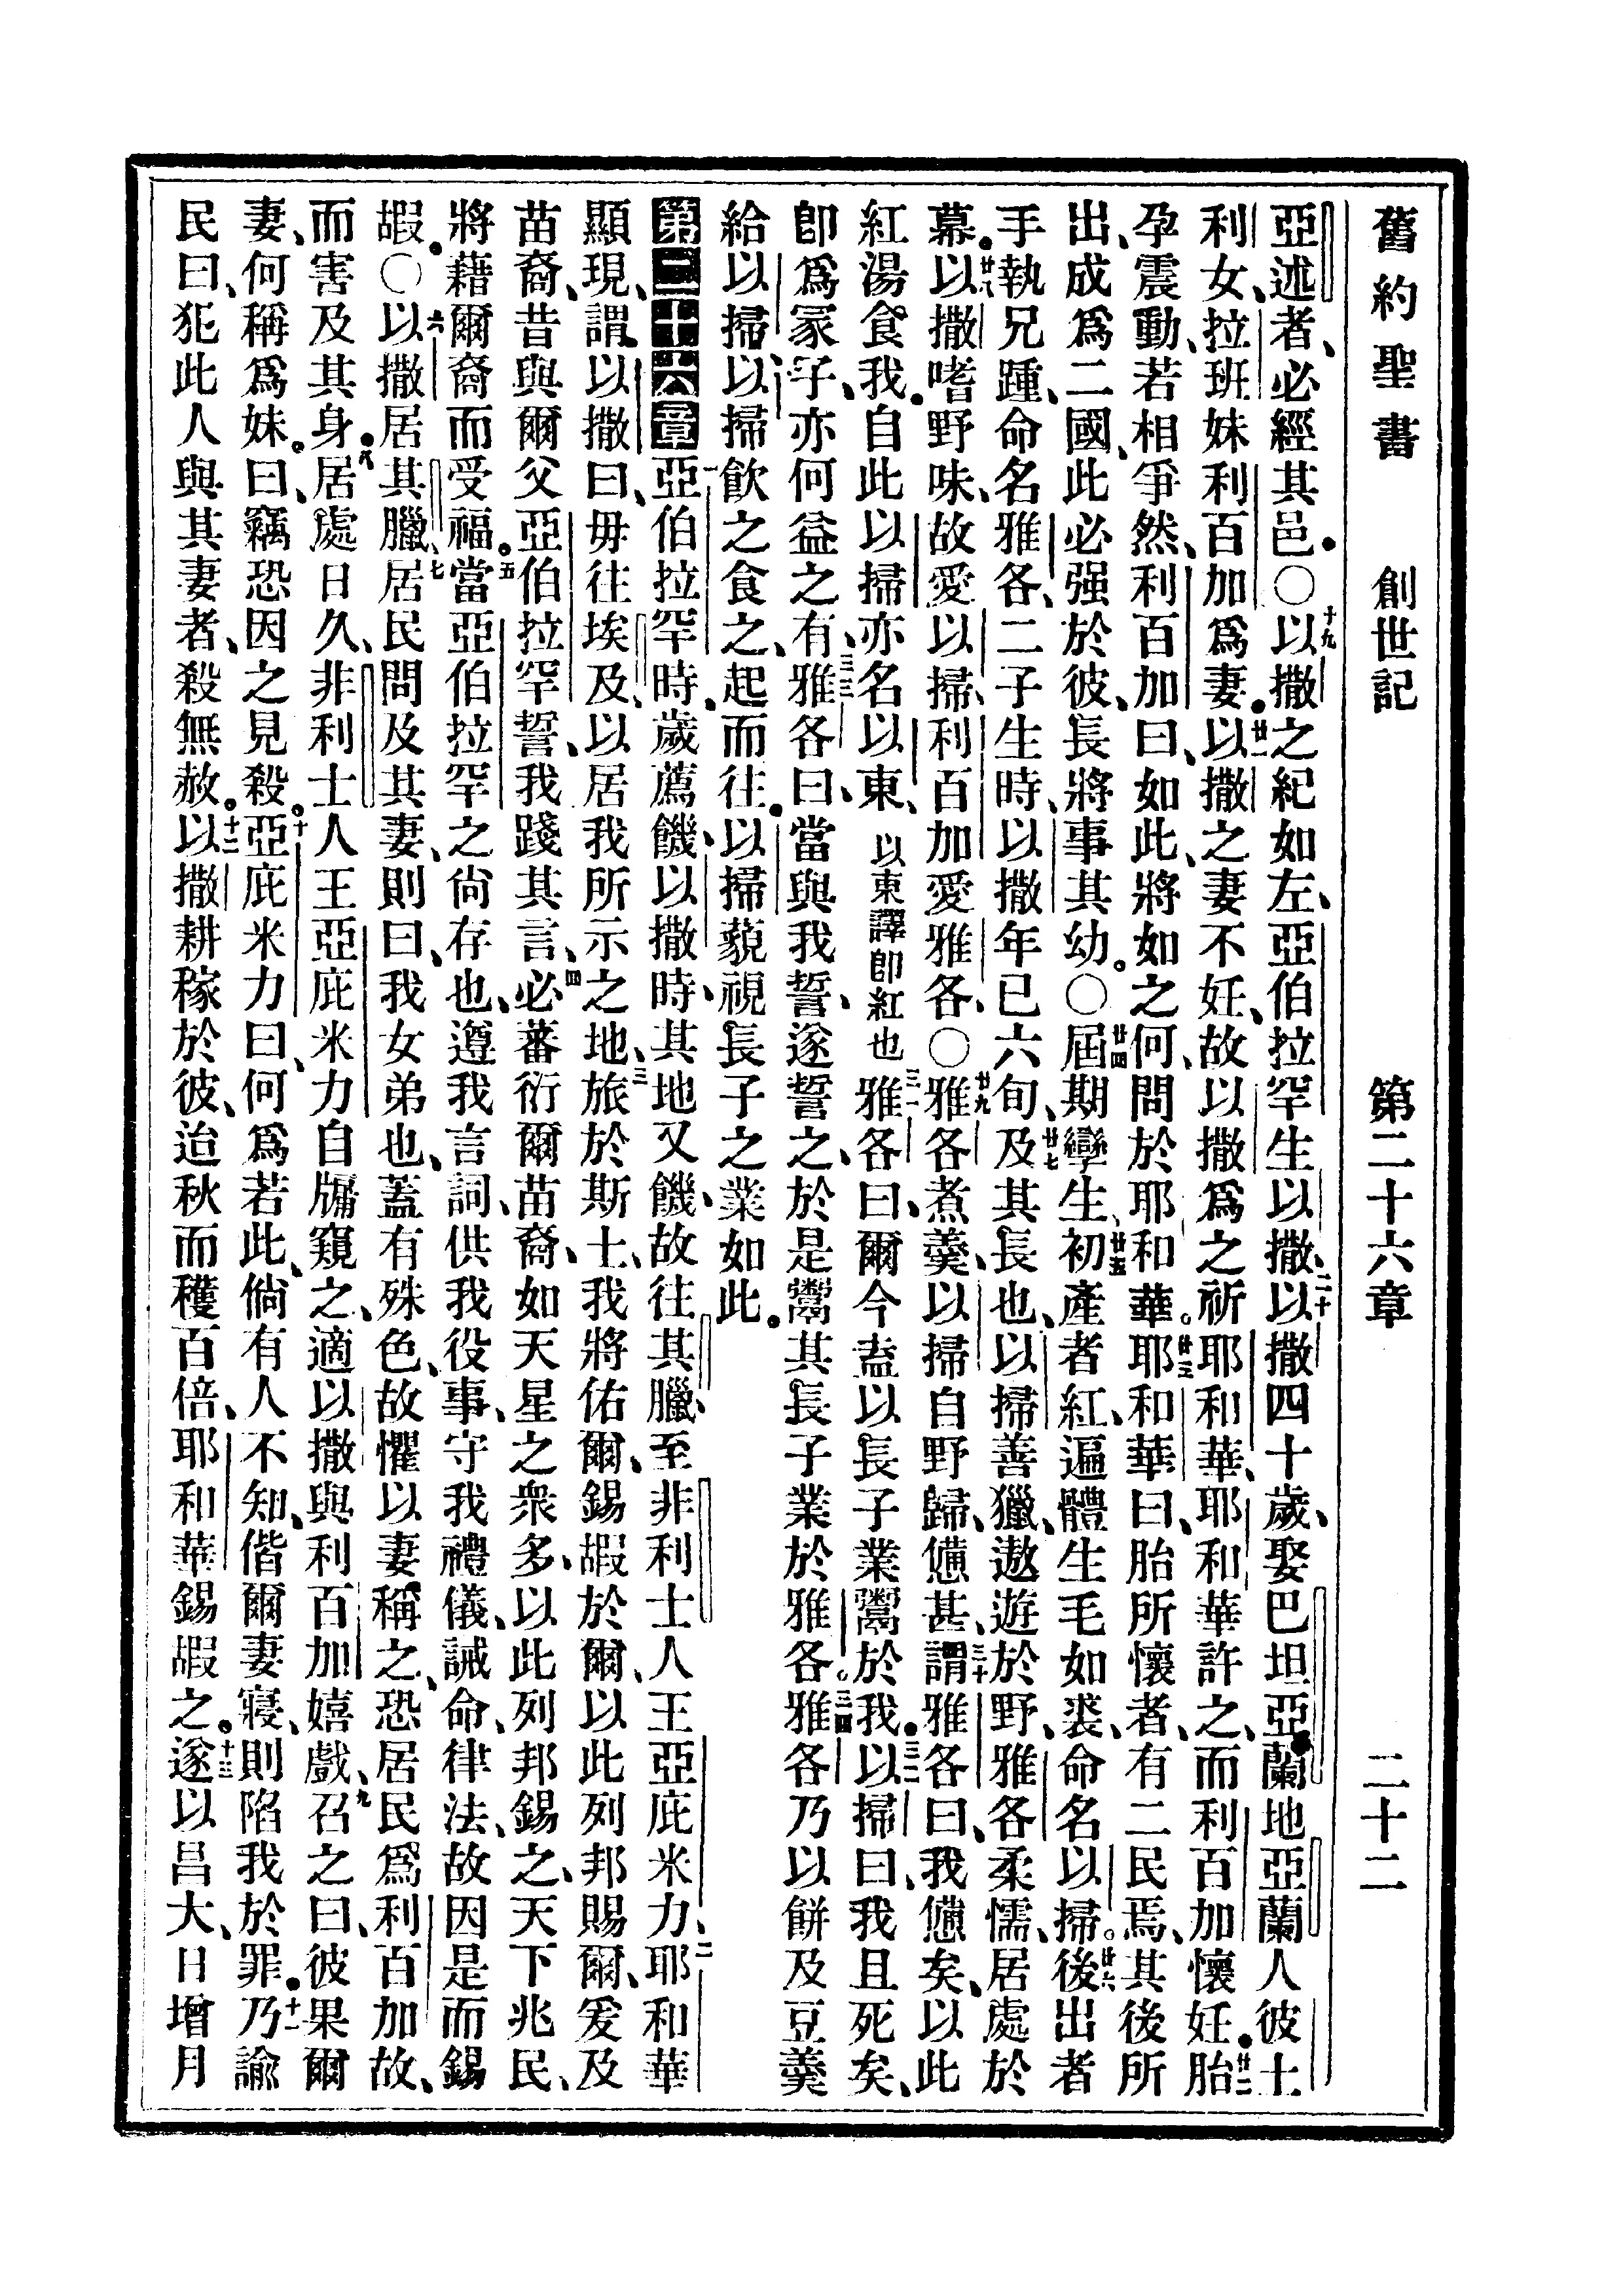 舊約聖書 創世記 第二十六章 二十二
亞述者、必經其邑。〇十九以撒之紀如左、亞伯拉罕生以撒、二十以撒四十歲、娶巴坦亞蘭地亞蘭人彼土
利女、拉班妹利百加爲妻。廿一以撒之妻不妊、故以撒爲之祈耶和華、耶和華許之、而利百加懷妊。廿二胎
孕震動、若相爭然、利百加曰、如此、將如之何、問於耶和華。廿三耶和華曰、胎所懷者、有二民焉、其後所
出、成爲二國、此必强於彼、長將事其幼。〇廿四屆期孿生、廿五初產者紅、遍體生毛如裘、命名以掃。廿六後出者
手執兄踵、命名雅各、二子生時、以撒年已六旬、廿七及其長也、以掃善獵、遨遊於野、雅各柔懦、居處於
幕。廿八以撒嗜野味、故愛以掃、利百加愛雅各、〇廿九雅各煮羹、以掃自野歸、憊甚、三十謂雅各曰、我憊矣、以此
紅湯食我。自此以掃亦名以東、以東譯卽紅也三一雅各曰、爾今盍以長子業鬻於我。三二以掃曰、我且死矣、
卽爲冢子、亦何益之有、三三雅各曰、當與我誓、遂誓之、於是鬻其長子業於雅各。三四雅各乃以餅及豆羹
給以掃、以掃飮之食之、起而往。以掃藐視長子之業如此。
第二十六章一亞伯拉罕時。歲薦饑、以撒時、其地又饑、故往其臘、至非利士人王亞庇米力、二耶和華
顯現、謂以撒曰、毋往埃及、以居我所示之地、三旅於斯土、我將佑爾、錫嘏於爾、以此列邦賜爾、爰及
苗裔、昔與爾父亞伯拉罕誓、我踐其言、四必蕃衍爾苗裔、如天星之衆多、以此列邦錫之、天下兆民、
將藉爾裔而受福。五當亞伯拉罕之尙存也、遵我言詞、供我役事、守我禮儀、誡命、律法、故因是而錫
嘏。〇六以撒居其臘、七居民問及其妻、則曰、我女弟也、蓋有殊色、故懼以妻稱之、恐居民爲利百加故、
而害及其身。八居處日久、非利士人王亞庇米力自牖窺之、適以撒與利百加嬉戲、九召之曰、彼果爾
妻、何稱爲妹。曰、竊恐因之見殺。十亞庇米力曰、何爲若此、倘有人不知、偕爾妻寢、則陷我於罪。十一乃諭
民曰、犯此人與其妻者、殺無赦。十二以撒耕稼於彼、迨秋而穫百倍、耶和華錫嘏之。十三遂以昌大、日增月